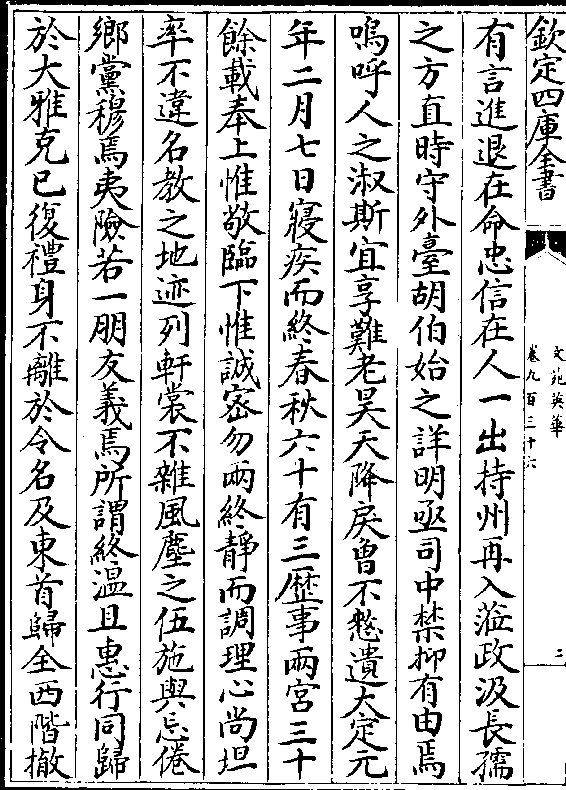 欽定四庫全書
文苑英華
卷九百三十六
二
有言進退在命忠信在人一出持州再入蒞政汲長孺
之方直時守外臺胡伯始之詳明亟司中禁抑有由焉
嗚呼人之淑斯宜享難老昊天降戾曾不憖遺大定元
年二月七日寢疾而終春秋六十有三歴事兩宮三十
餘載奉上惟敬臨下惟誠密勿兩終靜而調理心尚坦
率不違名教之地迹列軒裳不雜風塵之伍施與忘倦
鄉黨穆焉夷險若一朋友義焉所謂終溫且惠行同歸
於大雅克已復禮身不離於令名及東首歸全西階撤